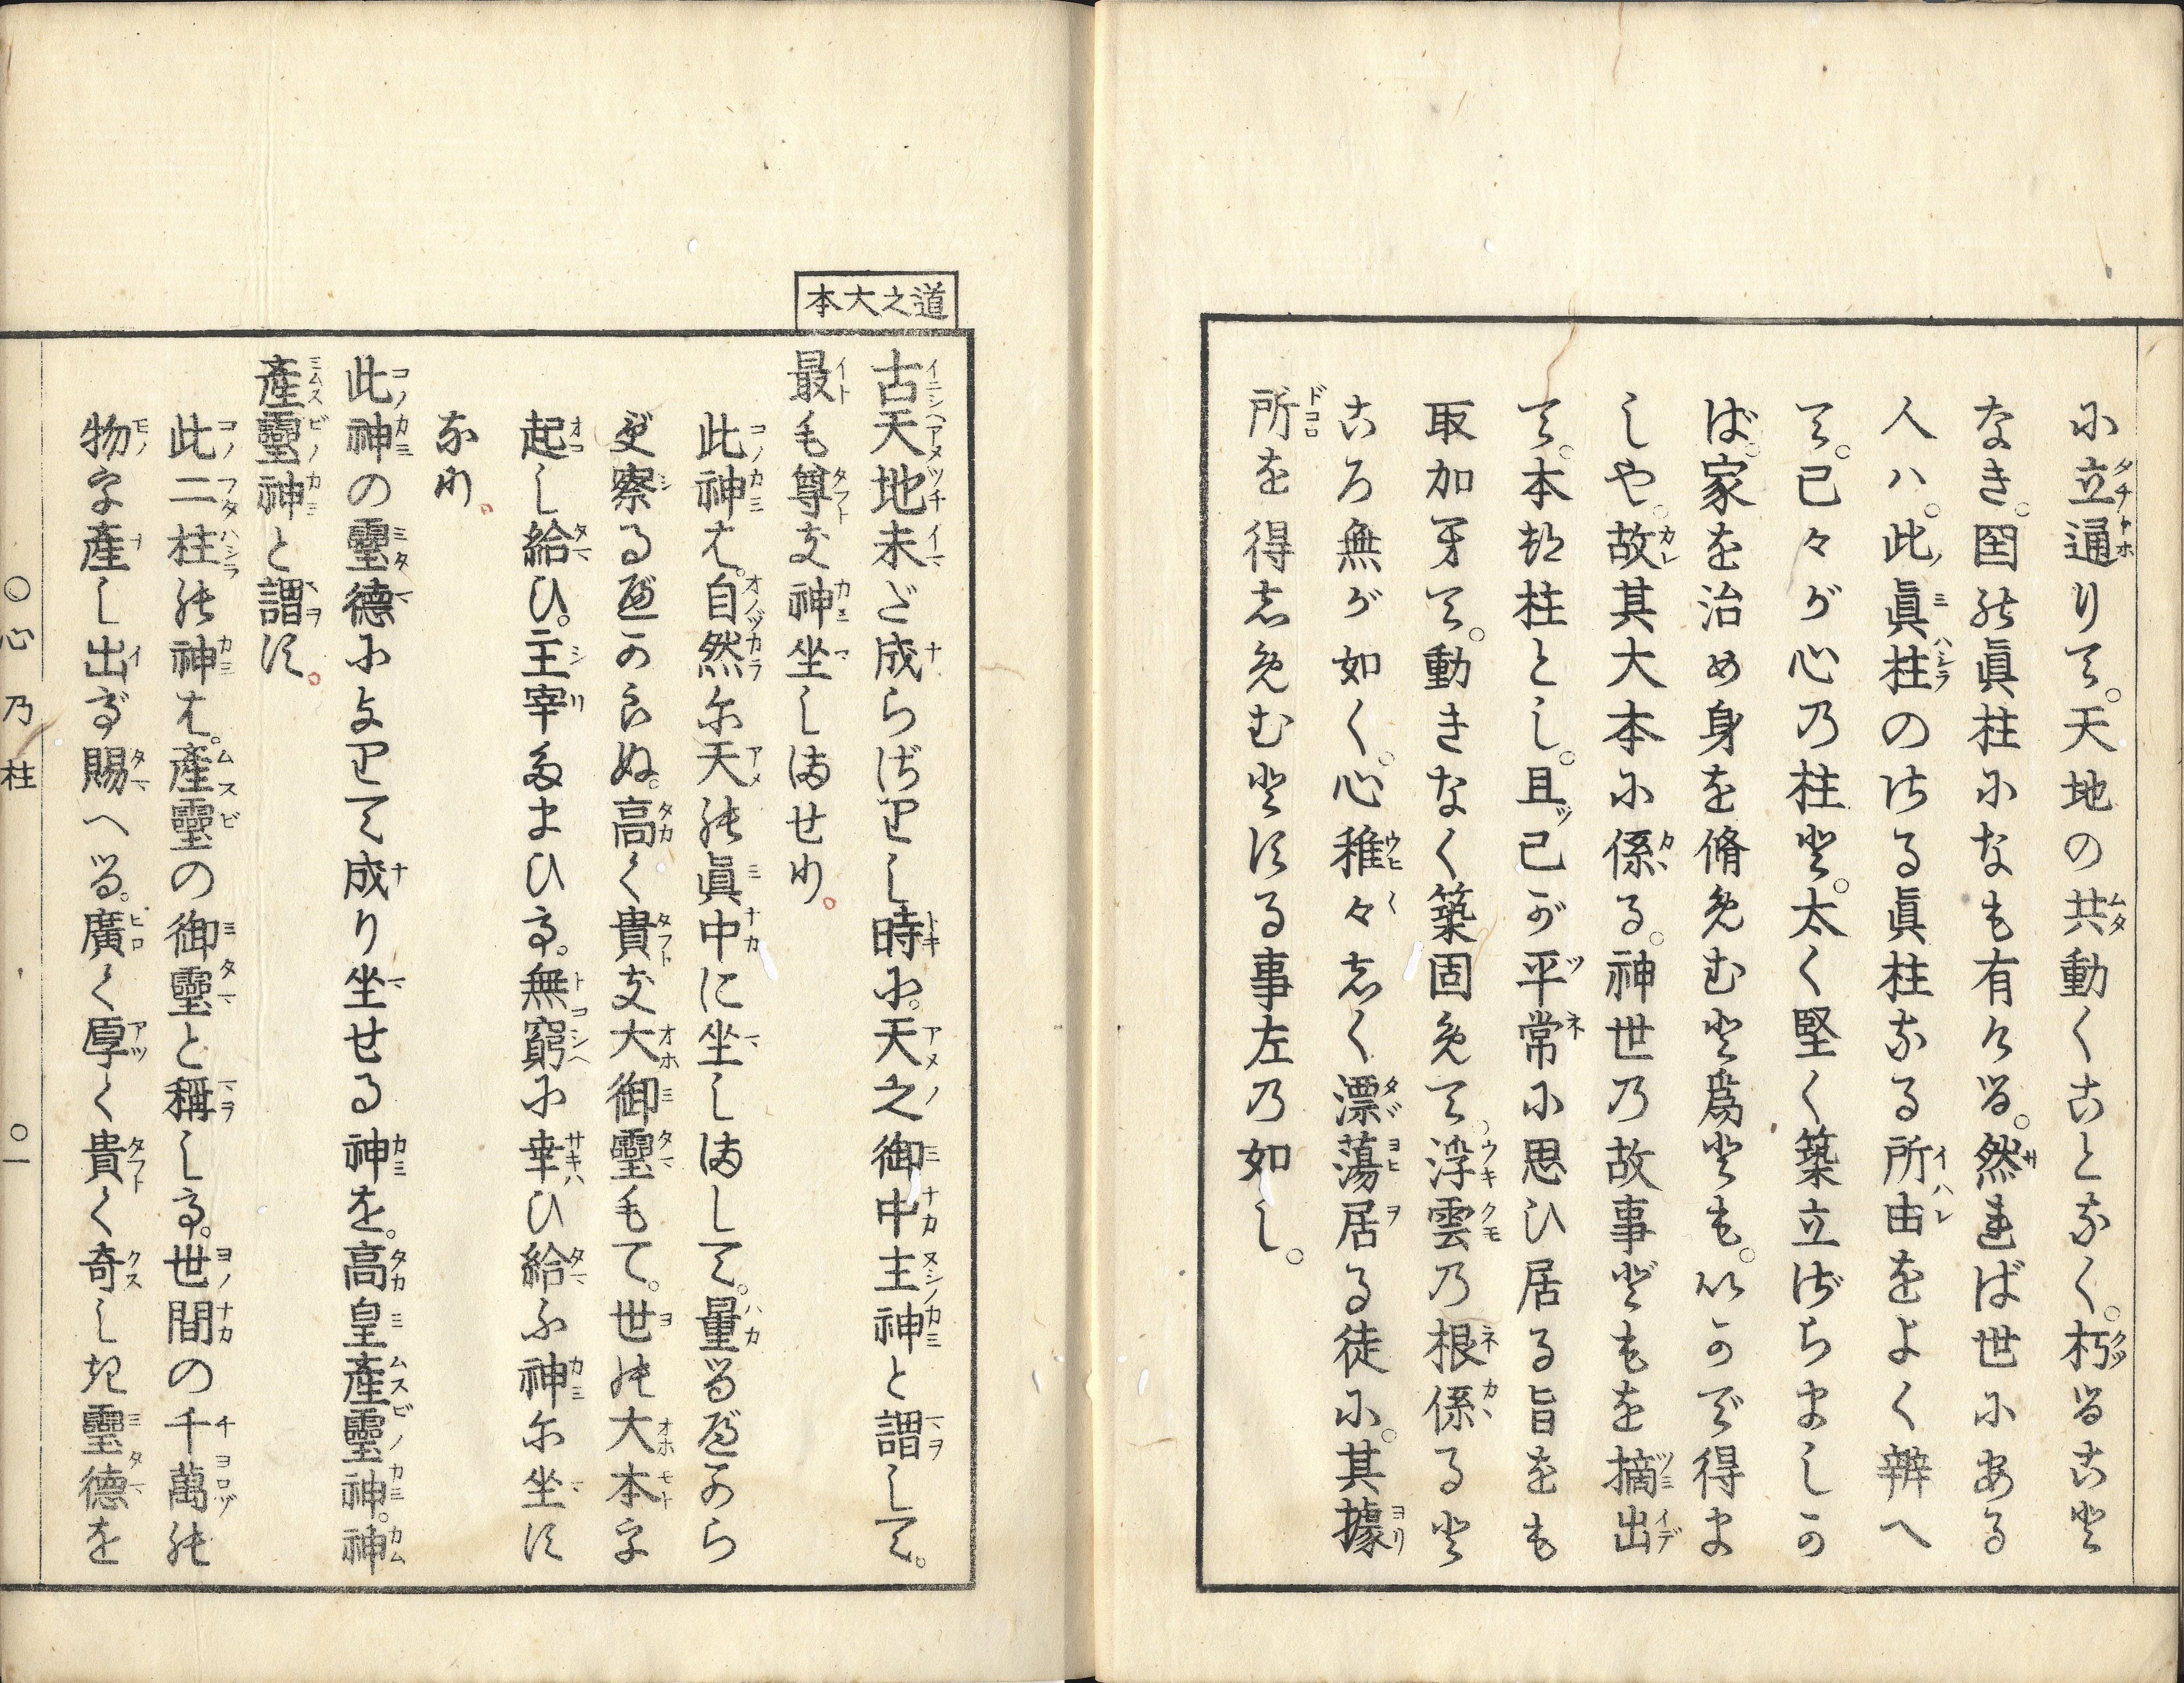 に立通りて。天地の共動くことなく。朽ることと
なき。国の眞柱になも有ける。然れば世にある
人ハ。此眞柱のける眞柱なる所由をよく辨へ
て。己々が心乃柱と。太く堅く築立ずらましか
ば。家を治め身を脩めむと爲とも。いかで得ま
しや。故其大本に係る。神世乃故事どもを摘出
て。本都柱とし。且己が平常に思ひ居る旨をも
取加牙て。動きなく築固めて。浮雲乃根係ると
ころ無が如く。心稚々志く漂蕩居る徒に。其據
所を得志めむとする事左乃如し。
道之大本
古天地未だ成らざりし時に。天之御中主神と謂して。
最も尊き神坐しませり。
此神は。自然に天能眞中に坐しまして。量るべから
ず察るべからぬ。高く貴き大御靈もて。世能大本を
起し給ひ。主宰たまひて。無窮に幸ひ給ふ神に坐す
なり。
此神の靈德によりて成り坐せる神を。高皇產靈神。神
產靈神と謂す。
此二柱能神は。產靈の御靈と稱して。世間の千萬能
物を產し出で賜へる。廣く厚く貴く奇しき靈德を
○心乃柱 ○一